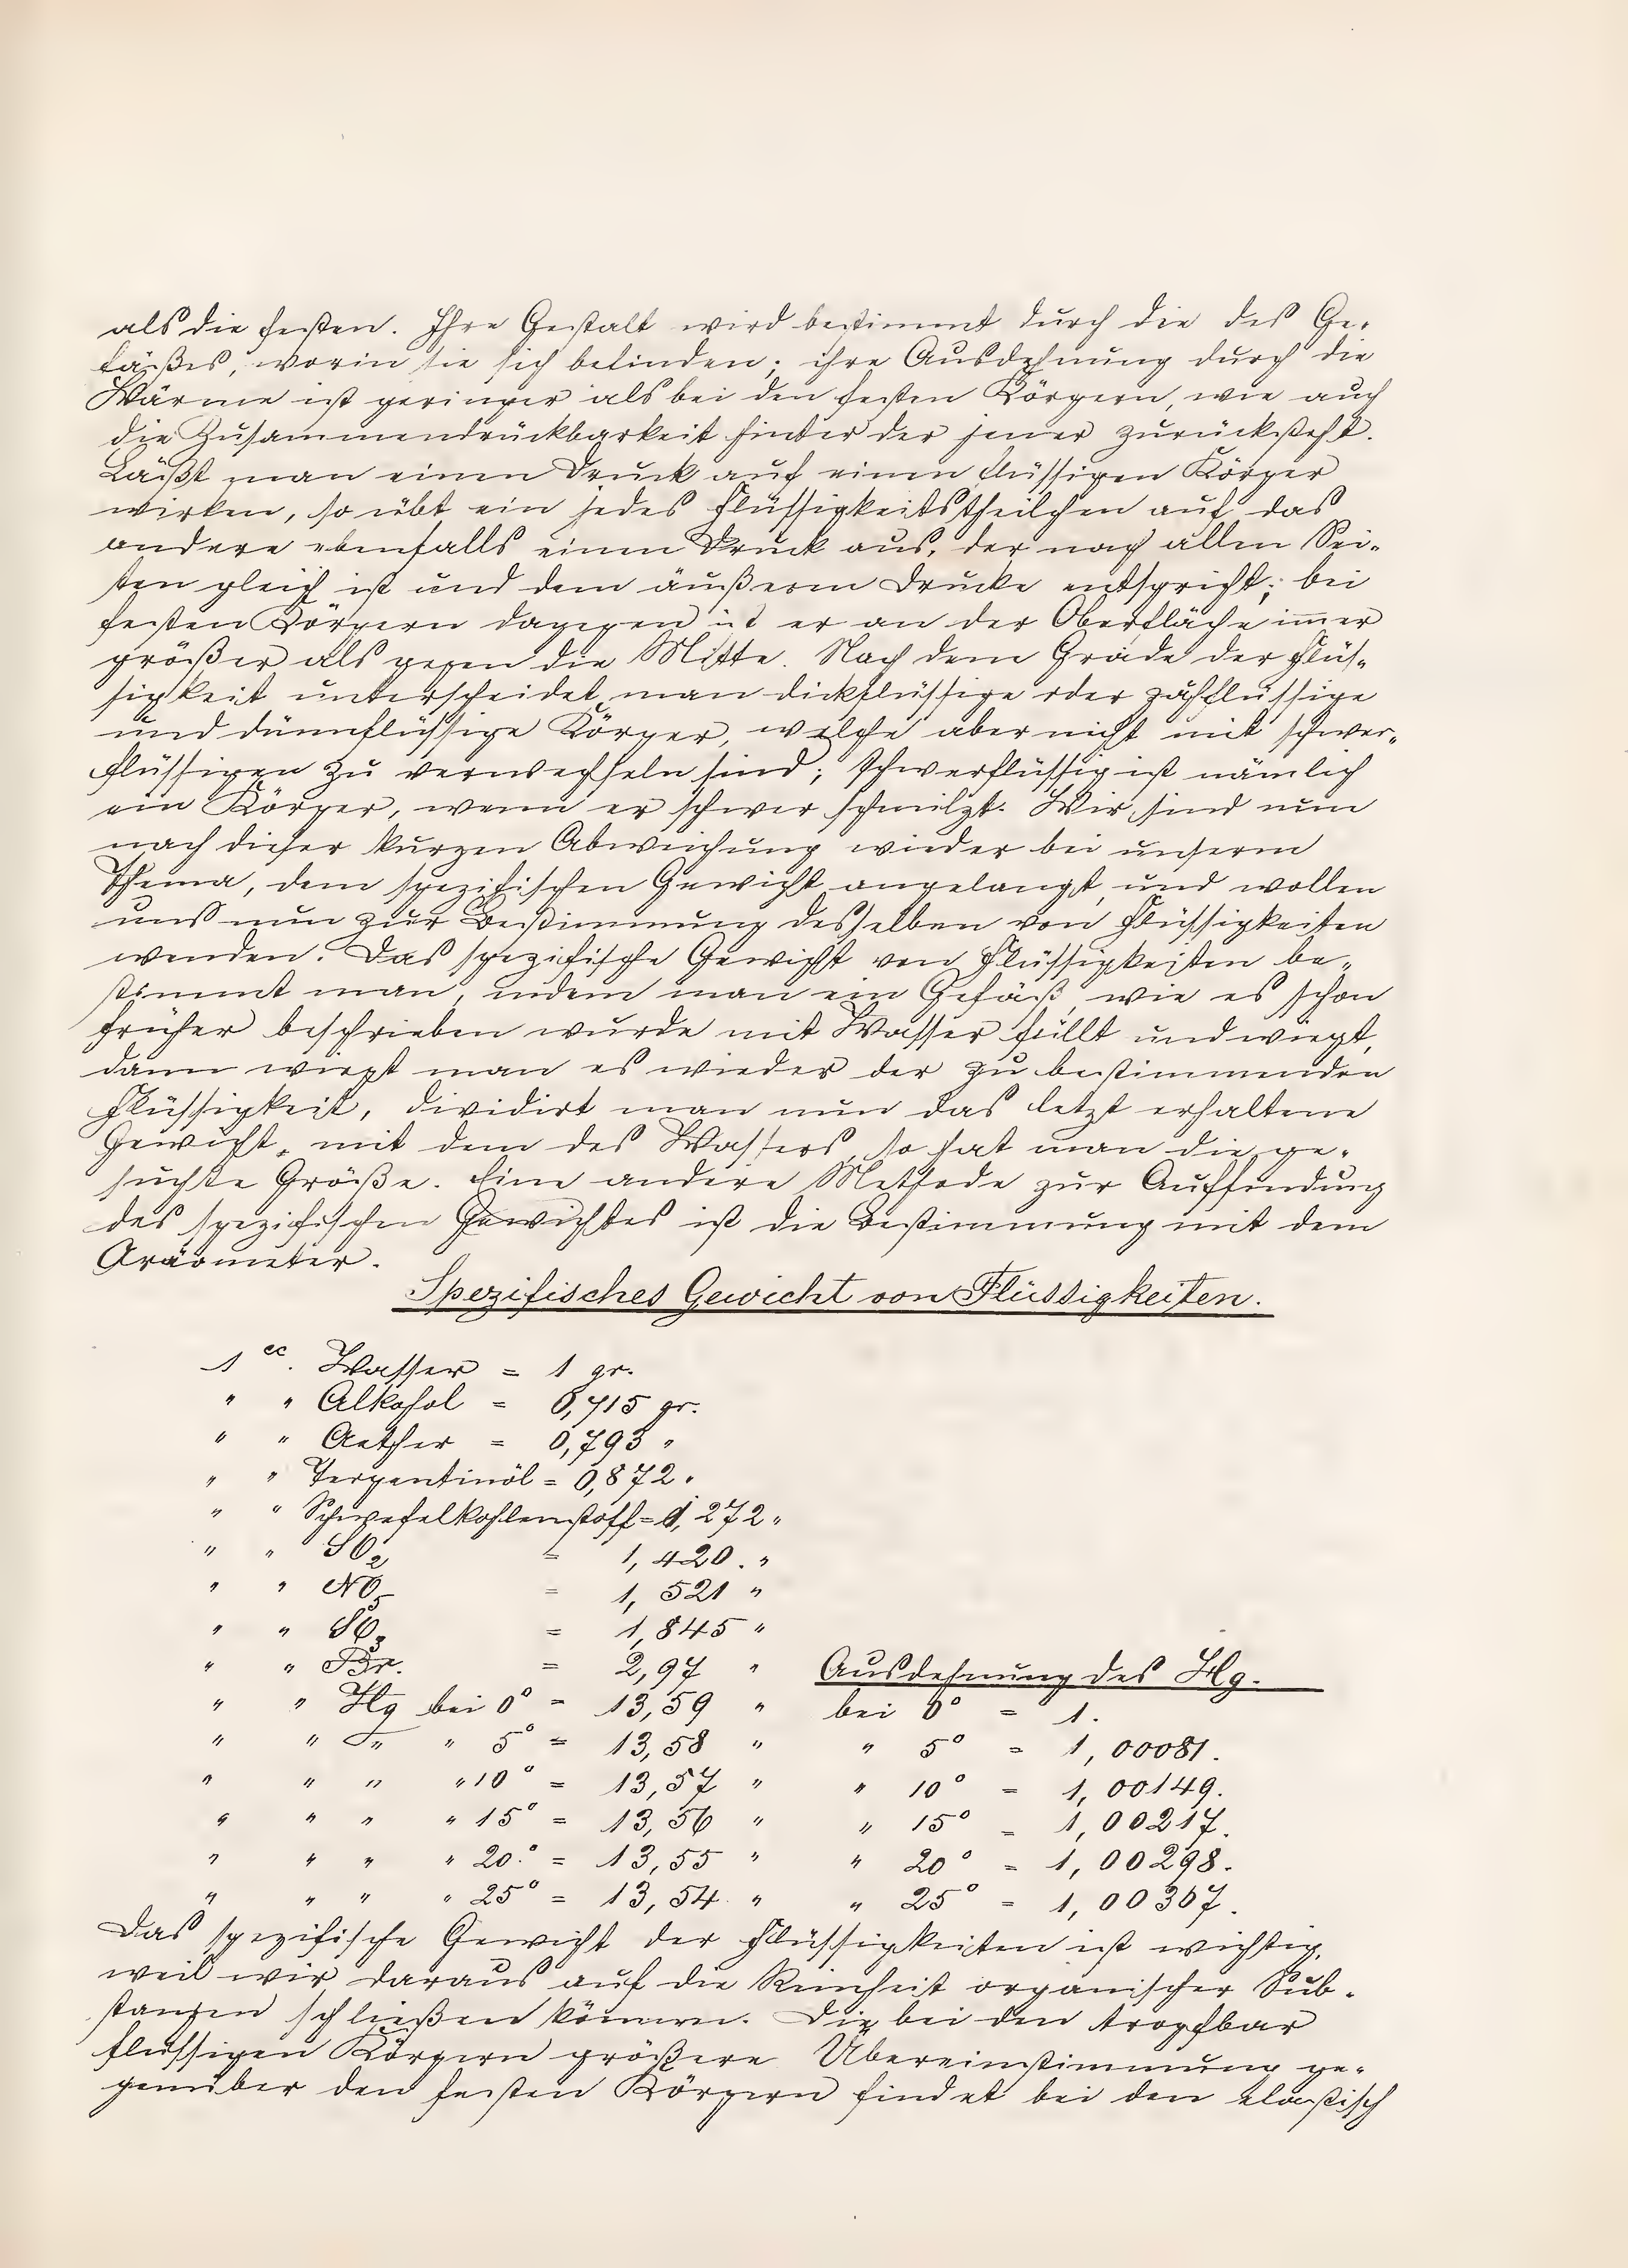 als die festen. Ihre Gestalt wird bestimmt durch die des Ge-
fäßes, worin sie sich befinden; ihre Ausdehnung durch die
Wärme ist geringer als bei den festen Körpern, wie auch
die Zusammendrückbarkeit hinter der jener zurücksteht.
Läßt man einen Druck auf einen flüssigen Körper
wirken, so übt ein jedes Flüssigkeitstheilchen auf das
andere ebenfalls einen Druck aus, der nach allen Sei-
ten gleich ist und dem äußeren Drucke entspricht; bei
festen Körpern dagegen ist er an der Oberfläche im̅er
größer als gegen die Mitte. Nach dem Grade der Flüs-
sigkeit unterscheidet man dickflüssige oder zähflüssige
und dünnflüssige Körper, welche aber nicht mit schwer-
flüssigen zu verwechseln sind; schwerflüssig ist nämlich
ein Körper, wenn er schwer schmilzt. Wir sind nun
nach dieser kurzen Abweichung wieder bei unserm
Thema, dem spezifischen Gewicht angelangt, und wollen
uns nun zur Bestimmung desselben von Flüssigkeiten
wenden. Das spezifische Gewicht von Flüssigkeiten be-
stimmt man, indem man ein Gefäß, wie es schon
früher beschrieben wurde mit Wasser füllt und wiegt,
dann wiegt man es wieder der zu bestimmenden
Flüssigkeit, dividirt man nun das letzt erhaltene
Gewicht, mit dem des Wassers, so hat man die ge-
suchte Größe. Eine andere Methode zur Auffindung
des spezifischen Gewichtes ist die Bestimmung mit dem
Aräometer.
Spezifisches Gewicht von Flüssigkeiten.
1 cc. Wasser = 1 gr.
" " Alkohol = 0,715 gr.
" " Aether = 0,793 "
" " Terpentinöl = 0,872 "
" " Schwefelkohlenstoff = 1,272 "
" " SO2 = 1,420. "
" " NO5 = 1,521 "
" " SO3 = 1,845 "
" " Br. = 2,97 " Ausdehnung des Hg.
" " Hg bei 0° = 13,59 " bei 0° = 1.
" " " " 5° = 13,58 " " 5° = 1,00081.
" " " " 10° = 13,57 " " 10° = 1,00149.
" " " " 15° = 13,56 " " 15° = 1,00217.
" " " " 20.° = 13,55 " " 20° = 1,00298.
" " " " 25° = 13,54. " " 25° = 1,00367.
Das spezifische Gewicht der Flüssigkeiten ist wichtig,
weil wir daraus auf die Reinheit organischer Sub-
stanzen schließen können. Die bei den tropfbar
flüssigen Körpern größere Übereinstimmung ge-
genüber den festen Körpern findet bei den elastisch